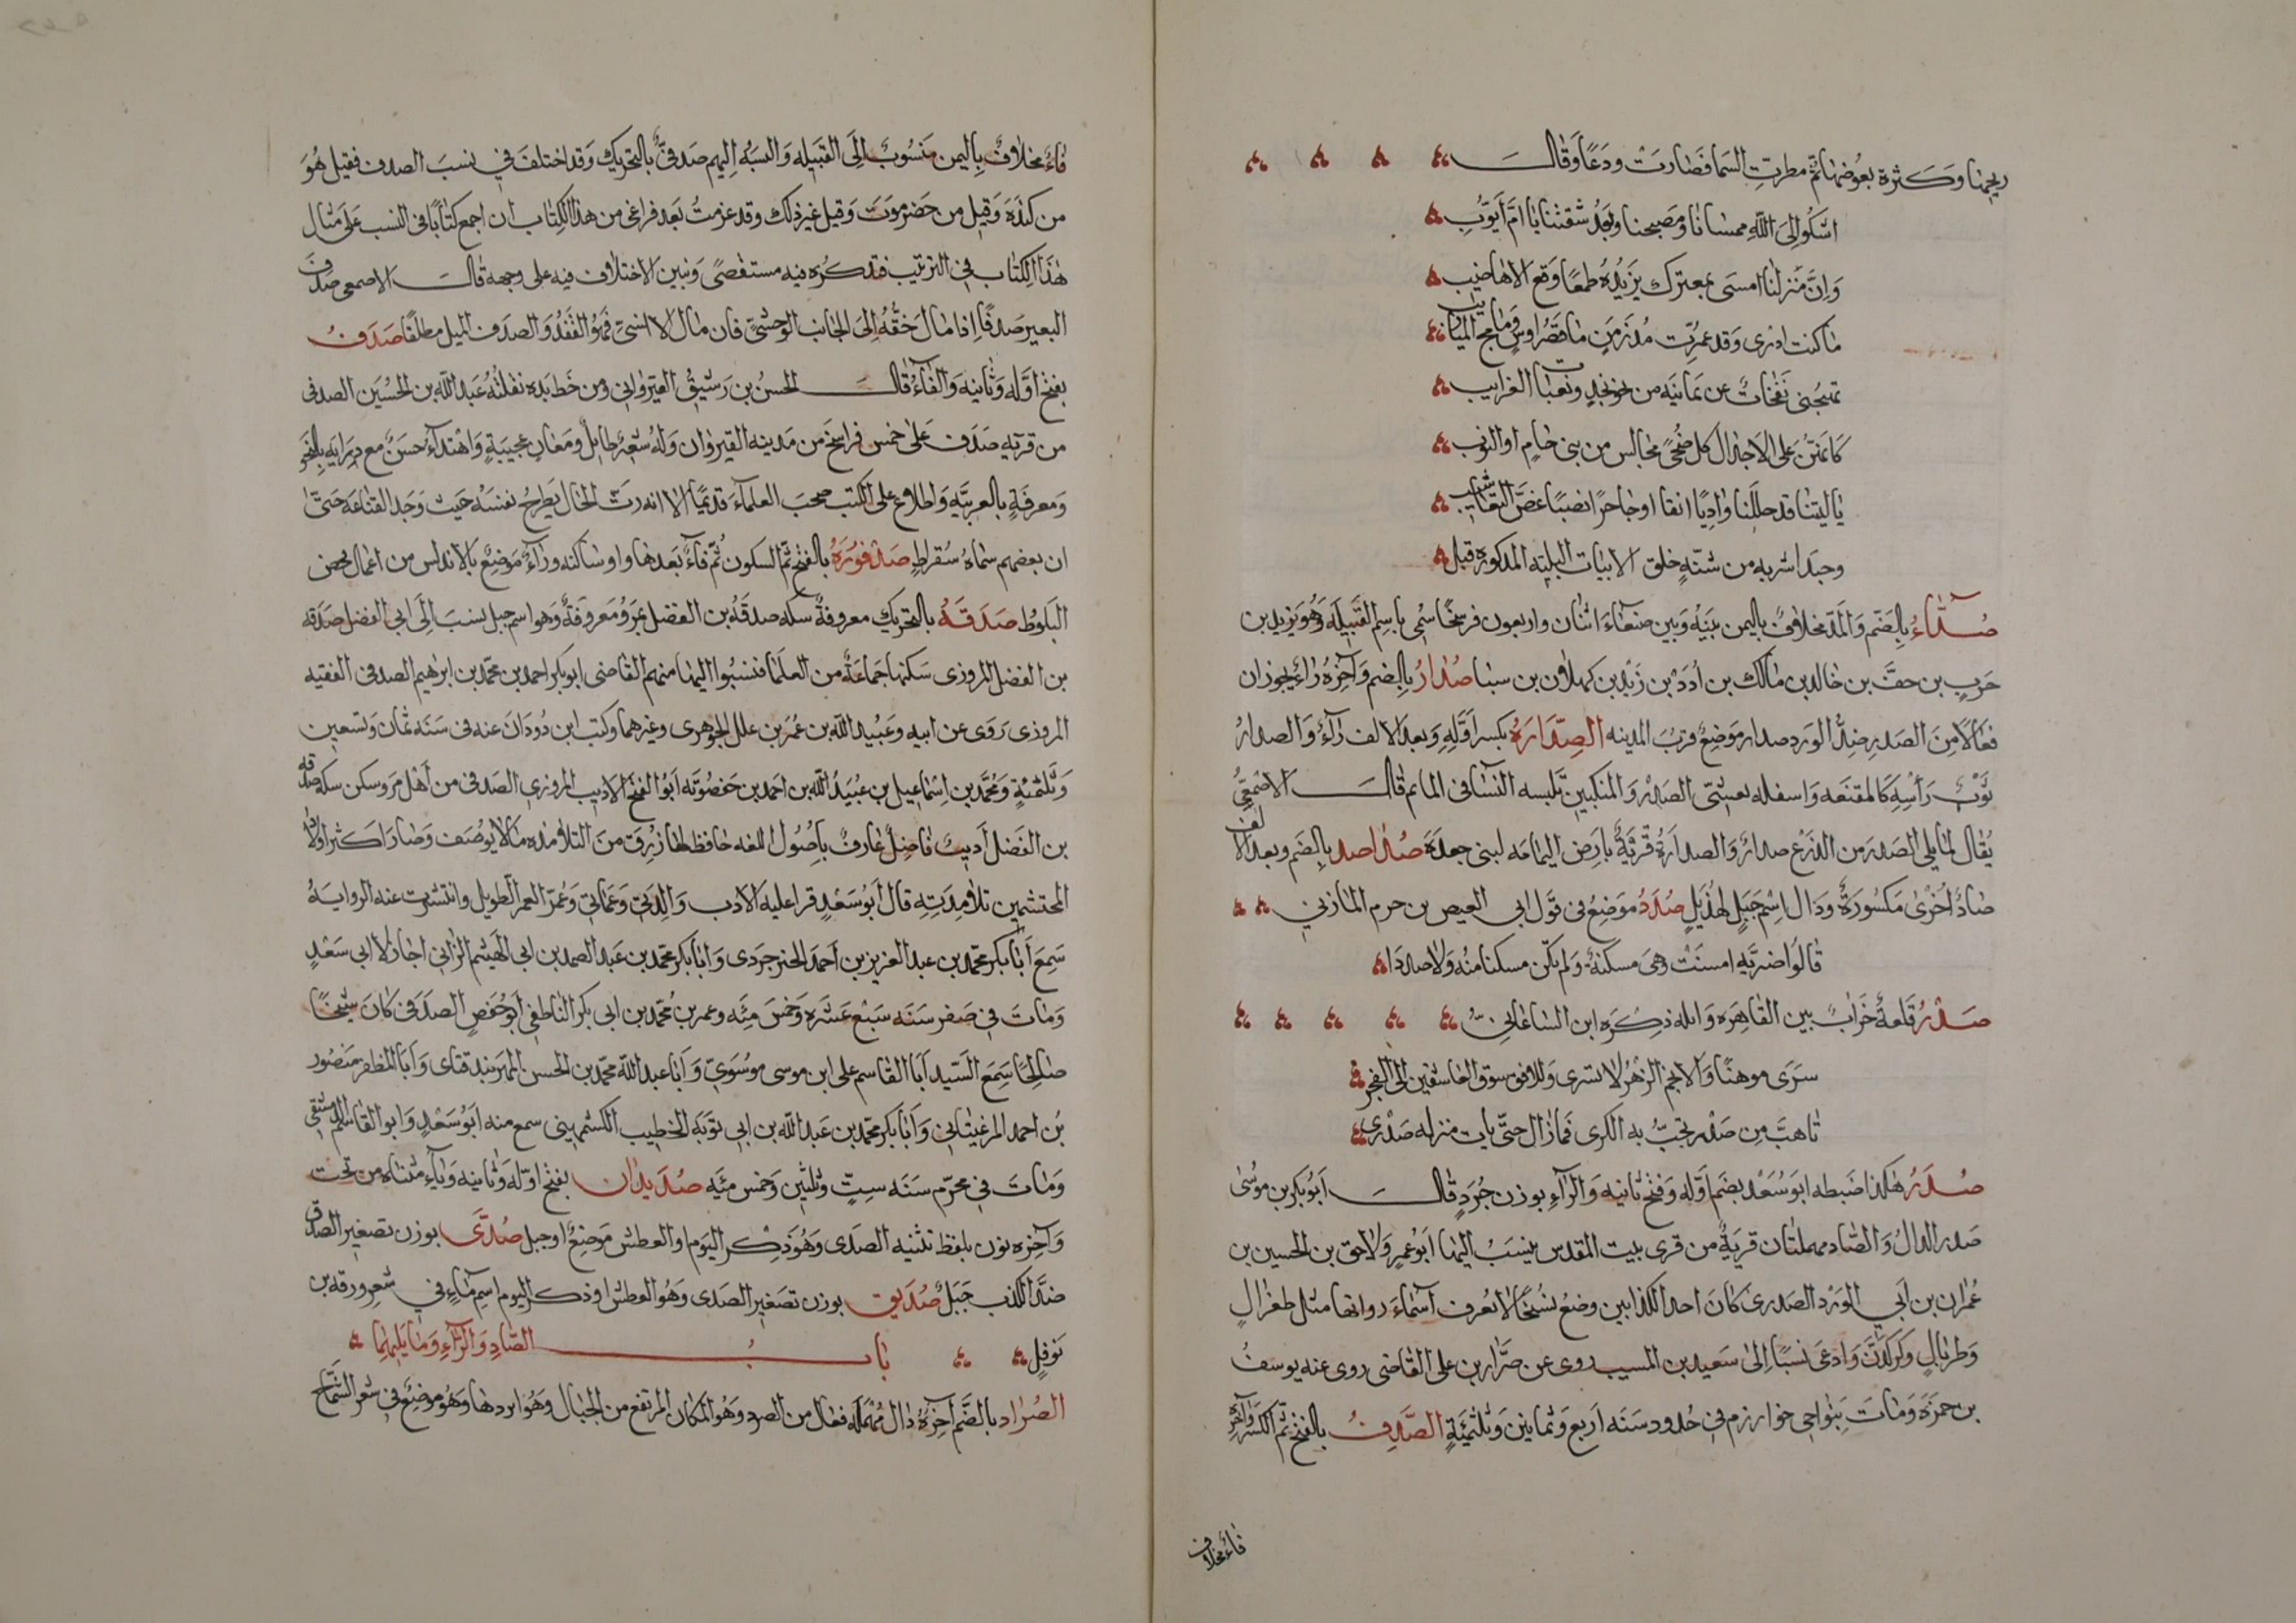 ريحها وكثرة بعوضها ثم مطرت السما فصارت ودعا وقال
اشكو الى الله ممسانا ومصبحنا وبعد شقتنا يا ام ايوب
وان منزلنا امسى بمعترك يزيده طمعا وقع الاهاضيب
ما كنت ادرى وقد عمرت مذ زمن ما قصر اوس وما بج الميازيب
تهيجنى نفحات من يمانيه من نحو نجد ونعبات الغرابيب
كانهن على الاجذال كل ضحى مجالس من بنى حام او النوب
يا ليتنا قد حللنا وادیا انفا او حاجرا نصبا غض التعاشيب
وحبذا شربه من شنة خلق الابيات البليته المذكوره قبل
صداء بالضم والمد مخلاف باليمن بينه وبين صنعاء اثنان واربعون فرسخا سمى باسم القبيله وهو يزيد بن
حرب بن خالد بن مالك بن ادد بن زيد بن كهلان بن سبا صدار بالضم واخره راء يجوز ان
فعالا من الصدر ضد الورد صدار موضع قرب المدينه الصدارة بكسر اوله وبعد الالف راء والصدار
ثوب راسه كالمقنعه واسفله يغشى الصدر والمنكبين تلبسه النسا فى الماتم قال الاصمعى
يقال لما يلى الصدر من الدرع صدار والصدارة قرية بارض اليمامه لبنى جعدة صداصد بالضم وبعد الالف
صاد اخرى مكسورة ودال اسم جبل لهذيل صدد موضع فى قول ابى العيص بن حرم المازنى
قالوا ضريه امست وهى مسكنه ولم تكن مسكنا منه ولا صددا
صدر قلعة خراب بين القاهره وايله ذكره ابن الساعاتى
سرى موهنا والانجم الزهر لا تسرى وللافق سوق العاشقين الى الفجر
تاهب من صدر تخب به الكرى فما زال حتى بات منزله صدرى
صدر هكذا ضبطه ابو سعد بضم اوله وفتح ثانيه والراء بوزن جرد قال ابو بكر بن موسى
صدر الدال والصاد مهملتان قرية من قرى بيت المقدس ينسب اليها ابو عمر ولاحق بن الحسين بن
عمران بن ابى الورد الصدرى كان احد الكذابين وضع نسخا لا يعرف اسماء رواتها مثل طغرال
وطربال وكركدن وادعى نسبا الى سعيد بن المسيب روى عن ضرار بن على القاضى روى عنه يوسف
بن حمزة ومات بنواحى خوارزم فى حدود سنه اربع وثمانين وثلثمئة الصدف بالفتح ثم الكسر واخره
فاء مخلاف
فاء مخلاف باليمن منسوب الى القبيله والنسبة اليهم صدفى بالتحريك وقد اختلف فى نسب الصدف فقيل هو
من كندة وقيل من حضرموت وقيل غير ذلك وقد عزمت بعد فراغى من هذا الكتاب ان اجمع كتابا فى النسب على مثال
هذا الكتاب فى الترتيب فتذكره فيه مستقصى ونبين الاختلاف فيه على وجهه قال الاصمعى صدف
البعير صدفا اذا مال خفه الى الجانب الوحشى فان مال الانسى فهو القفد والصدف الميل مطلقا صدف
بفتح اوله وثانيه والفاء قال الحسن بن رشيق القيروانى ومن خط يده نقلته عبد الله بن الحسين الصدفى
من قريه صدف على خمس فراسخ من مدينه القيروان وله شعر طايل ومعان عجيبة واهتداء حسن مع درايه بالنحو
ومعرفة بالعربيه واطلاع على الكتب صحب العلماء قديما الا انه رث الحال يطرح نفسه حيث وجد القناعه حتى
ان بعضهم سماه سقراط صدفورة بالفتح ثم السكون ثم فاء بعدها واو ساكنه وراء موضع بالاندلس من اعمال فحص
البلوط صدقة بالتحريك معروفة سكه صدقة بن الفضل بمرو معروفة وهو اسم جبل ينسب الى ابى الفضل صدقه
بن الفضل المروزى سكنها جماعة من العلما فنسبوا اليها منهم القاضى ابو بكر احمد بن محمد بن ابرهيم الصدفى الفقيه
المروزى روى عن ابيه وعبيد الله بن عمر بن علل الجوهرى وغيرهما وكتب ابن دودان عنه فى سنه ثمان وتسعين
وثلثمئة ومحمد بن اسماعيل بن عبيد الله بن احمد بن حفصويه ابو الفتح الاديب المروزى الصدفى من اهل مرو سكن سكه صدقه
بن الفضل اديب فاضل عارف باصول اللغه حافظ لها زرق من التلامذه ما لا يوصف وصار اكثر اولاد
المحتشمين تلامذته قال ابو سعد قرا عليه الادب والدى وعماى وعمر العمر الطويل وانتشرت عنه الروايه
سمع ابا بكر محمد بن عبد العزيز بن احمد الخرجردى وابا بكر محمد بن عبد الصمد بن ابى الهيثم الترابى اجاز لابى سعد
ومات فى صفر سنه سبع عشره وخمس مئه وعمر بن محمد بن ابى بكر الناطفى ابو حفص الصدفى كان شيخا
صالحا سمع السيد ابا القاسم على ابن موسى موسوى وابا عبد الله محمد بن الحسن المهربندقتاى وابا المظفر منصور
بن احمد المرغينانى وابا بكر محمد بن عبد الله بن ابى توبة الخطيب الكشميهنى سمع منه ابو سعد وابو القاسم الدمشقى
ومات فى محرم سنه ست وثلثين وخمس مئه صديان بفتح اوله وثانيه وياء مثناه من تحت
واخره نون بلفظ تثنيه الصدى وهو ذكر اليوم او العطش موضع او جبل صدى بوزن تصغير الصدق
ضد الكذب جبل صديق بوزن تصغير الصدى وهو العطش او ذكر اليوم اسم ماء فى شعر ورقه بن
نوفل باب الصاد والراء وما يليهما
الصراد بالضم اخره دال مهملة فعال من الصرد وهو المكان المرتفع من الجبال وهو ابردها وهو موضع فى شعر الشماخ